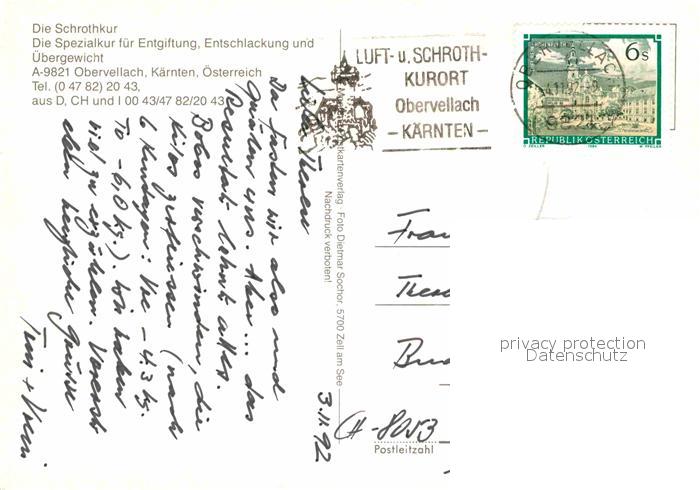 Die Schrothkur
Die Spezialkur für Entgiftung, Entschlackung und
Übergewicht
A-9821 Obervellach, Kärnten, Österreich
Tel. (0 47 82) 20 43,
aus D, CH und I 00 43/47 82/20 43
LUFT- u. SCHROTH-
KURORT
Obervellach
- KÄRNTEN -
6s
REPUBLIK ÖSTERREICH
Da fasten wir also und
grüssen uns. Aber ... das
Resultat lohnt alles.
Bobos verschwinden, die
Kilos zerfliessen (nach
6 Kurtagen: Vre - 4,3 kg.
To - 6,0 kg.). Wir haben
viel zu erzählen. Vorerst
aber herzliche Grüsse
Toni + Vreni
3.11.92
Postkartenverlag · Foto Dietmar Sochor, 5700 Zell am See
Nachdruck verboten!
CH-8053
Postleitzahl
privacy protection
Datenschutz